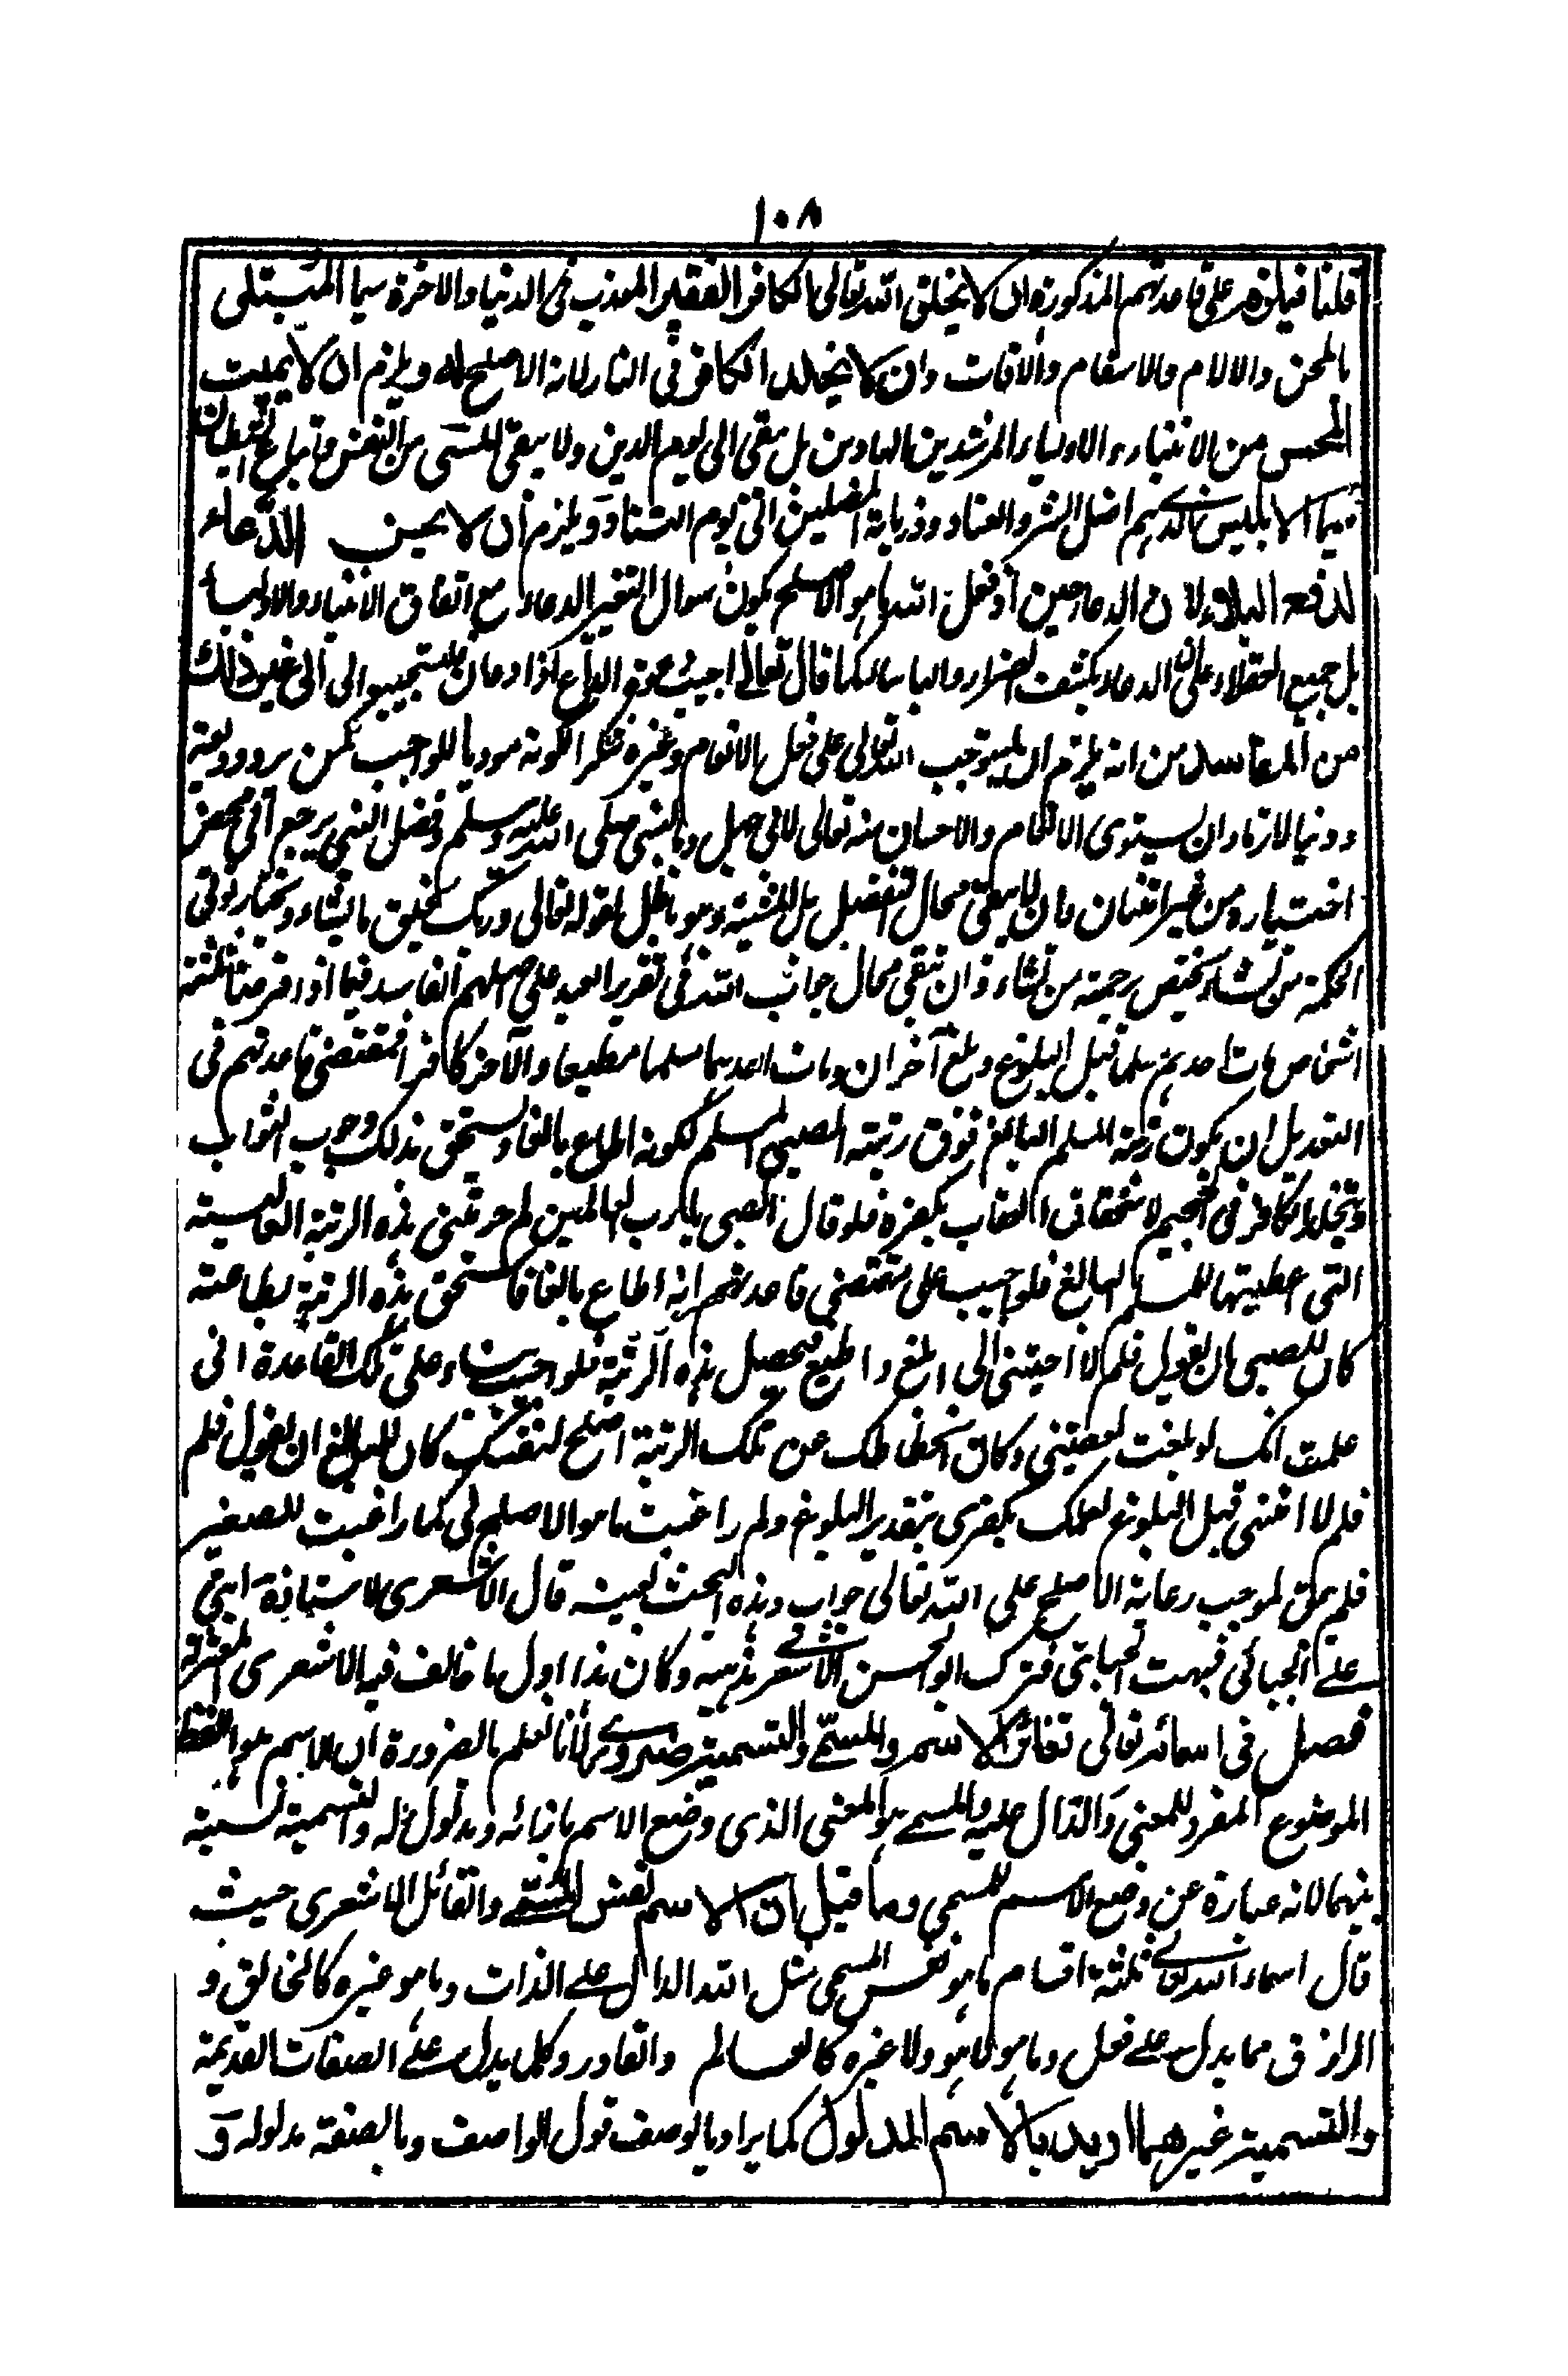 ١٠٨
قلنا فيلزم على قاعدتهم المذكورة ان لا يخلق الله تعالى الكافر الفقير المعذب فى الدنيا والاخرة سيما المبتلى
بالمحن والالام والاسقام والافات وان لا يخلد الكافر فى النار لانه الاصلح له ويلزم ان لا يميت
المحسن من الانبياء والاولياء المرشدين الهادين بل يبقى الى يوم الدين ولا يبقى
سيما الابليس الشر والعناد وذرياته المضلين الى يوم التناد ويلزم ان لا يحسن الدعاء
لدفع البلاء لان الدعاء حين اذ فعل الله ما هو الاصلح يكون سوال التغير الدعاء مع اتفاق الانبياء والاولياء
بل جميع العقلاء على ان الدعاء يكشف الضراء والباساء كما قال تعالى اجيب دعوة الداع اذا دعان فليستجيبوا لى الى غير ذلك
من المفاسد من انه يلزم ان لا يستوجب الله تعالى على فعل الانعام وغيره شكرا لكونه موديا للواجب كمن يرد وديعة
ودينا لازما وان يستوى الانعام والاحسان منه تعالى لابى جهل وبالنبى صلى الله عليه وسلم وفضل النبى يرجع الى محض
اختياره من غير امتنان وان لا يبقى مجال التفضل بل المشية وهو باطل لقوله تعالى وربك يخلق ما يشاء ويختار يوتى
الحكمة من يشاء يختص رحمته من يشاء وان يبقى مجال جانب الله فى تقرير العبد على اصلهم الفاسد فيما اذا فرضنا ثلثة
اشخاص مات احدهم مسلما قبل البلوغ وبلغ آخران ومات احدهما مسلما مطيعا والآخر كافرا فمقتضى قاعدتهم فى
التعديل ان يكون رتبة المسلم البالغ فوق رتبته الصبى المسلم لكونه اطاع بالغا ويستحق بذلك وجوب الثواب
ويخلد الكافر فى الجحيم لاستحقاق العقاب بكفره فلو قال الصبى يا رب العالمين لم حرمتنى هذه الرتبة العالية
التى اعطيتها للمسلم البالغ فلو اجيب على مقتضى قاعدتهم انه اطاع بالغا فاستحق هذه الرتبة بطاعته
كان للصبى ان يقول فلم لا احييتنى الى ابلغ واطيع فيحصل هذه الرتبة فلو اجيب بناء على تلك القاعدة انى
علمت انك لو بلغت لعصيتنى وكان انحطاطك عن تلك الرتبة اصلح لنفسك كان للبالغ ان يقول فلم
فلم لا امتنى قبل البلوغ لعلمك بكفرى بتقدير البلوغ ولم راعيت ما هو الاصلح لى كما راعيت للصغير
فلم يبق لموجب رعاية الاصلح على الله تعالى جواب وهذه البحث بعينه قال الاشعرى لاستاذه ابى
على الجبائى فبهت الجبائى فترك ابو الحسن الاشعرى مذهبه وكان هذا اول ما خالف فيه الاشعرى المعتزلة
فصل فى اسمائه تعالى تغائر الاسم والمسمى والتسمية ضرورى لانا نعلم بالضرورة ان الاسم هو اللفظ
الموضوع المفرد للمعنى والدال عليه والمسمى هو المعنى الذى وضع الاسم بازائه ومدلول له والتسمية نسبته
بينهما لانه عبارة عن وضع الاسم للمسمى وما قيل ان الاسم نفس المسمى والقائل الاشعرى حيث
قال اسماء الله تعالى ثلثة اقسام ما هو نفس المسمى مثل الله الدال على الذات وما هو غيره كالخالق و
الرازق مما يدل على فعل وما هو لا هو ولا غيره كالعالم والقادر وكل ما يدل على الصفات القديمة
والتسمية غيرهما اريد بالاسم المدلول كما يراد بالوصف قول الواصف وبالصفة مدلوله و